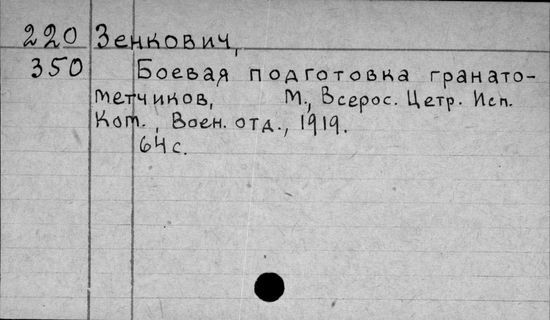 220 Зенкович,
350 Боевая подготовка гранато-
метчиков, М., Всерос. Цетр. Исп.
Ком., Воен. отд., 1919.
64 с.